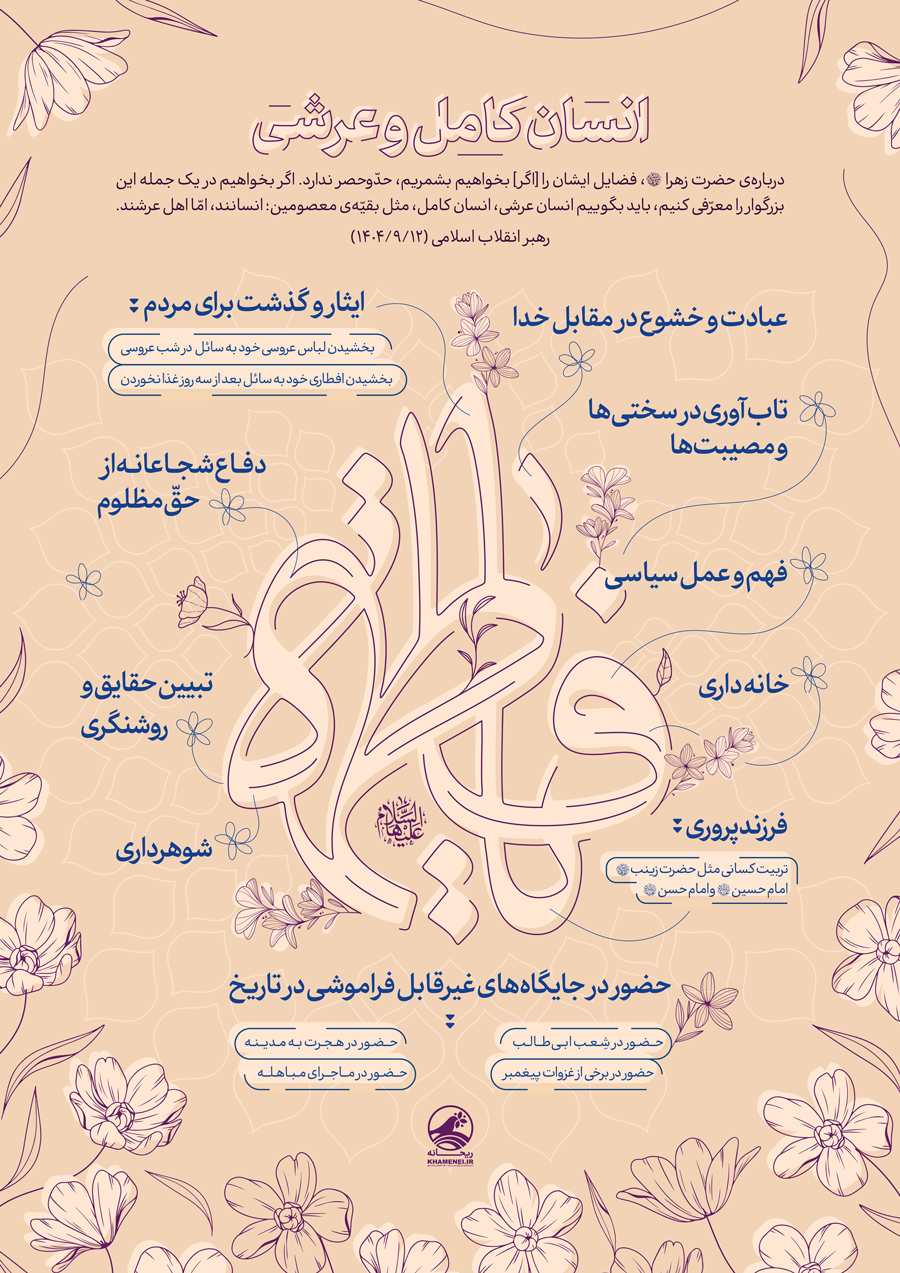 انسان کامل و عرشی
درباره‌ی حضرت زهرا ﷥، فضایل ایشان را [اگر] بخواهیم بشمریم، حدّ‌و‌حصر ندارد. اگر بخواهیم در یک جمله این
بزرگوار را معرّفی کنیم، باید بگوییم انسان عرشی، انسان کامل، مثل بقیّه‌ی معصومین؛ انسانند، امّا اهل عرشند.
رهبر انقلاب اسلامی (۱۴۰۴/۹/۱۲)
عبادت و خشوع در مقابل خدا
تاب‌آوری در سختی‌ها
و مصیبت‌ها
فهم و عمل سیاسی
خانه‌داری
فرزندپروری
تربیت کسانی مثل حضرت زینب
امام حسین و امام حسن
ایثار و گذشت برای مردم
بخشیدن لباس عروسی خود به سائل در شب عروسی
بخشیدن افطاری خود به سائل بعد از سه روز غذا نخوردن
دفاع شجاعانه از
حقّ مظلوم
تبیین حقایق و
روشنگری
شوهرداری
فاطمه
علیها السلام
حضور در جایگاه‌های غیرقابل فراموشی در تاریخ
حضور در شِعب ابی‌طالب
حضور در برخی از غزوات پیغمبر
حضور در هجرت به مدینه
حضور در ماجرای مباهله
ریحانه
KHAMENEI.IR